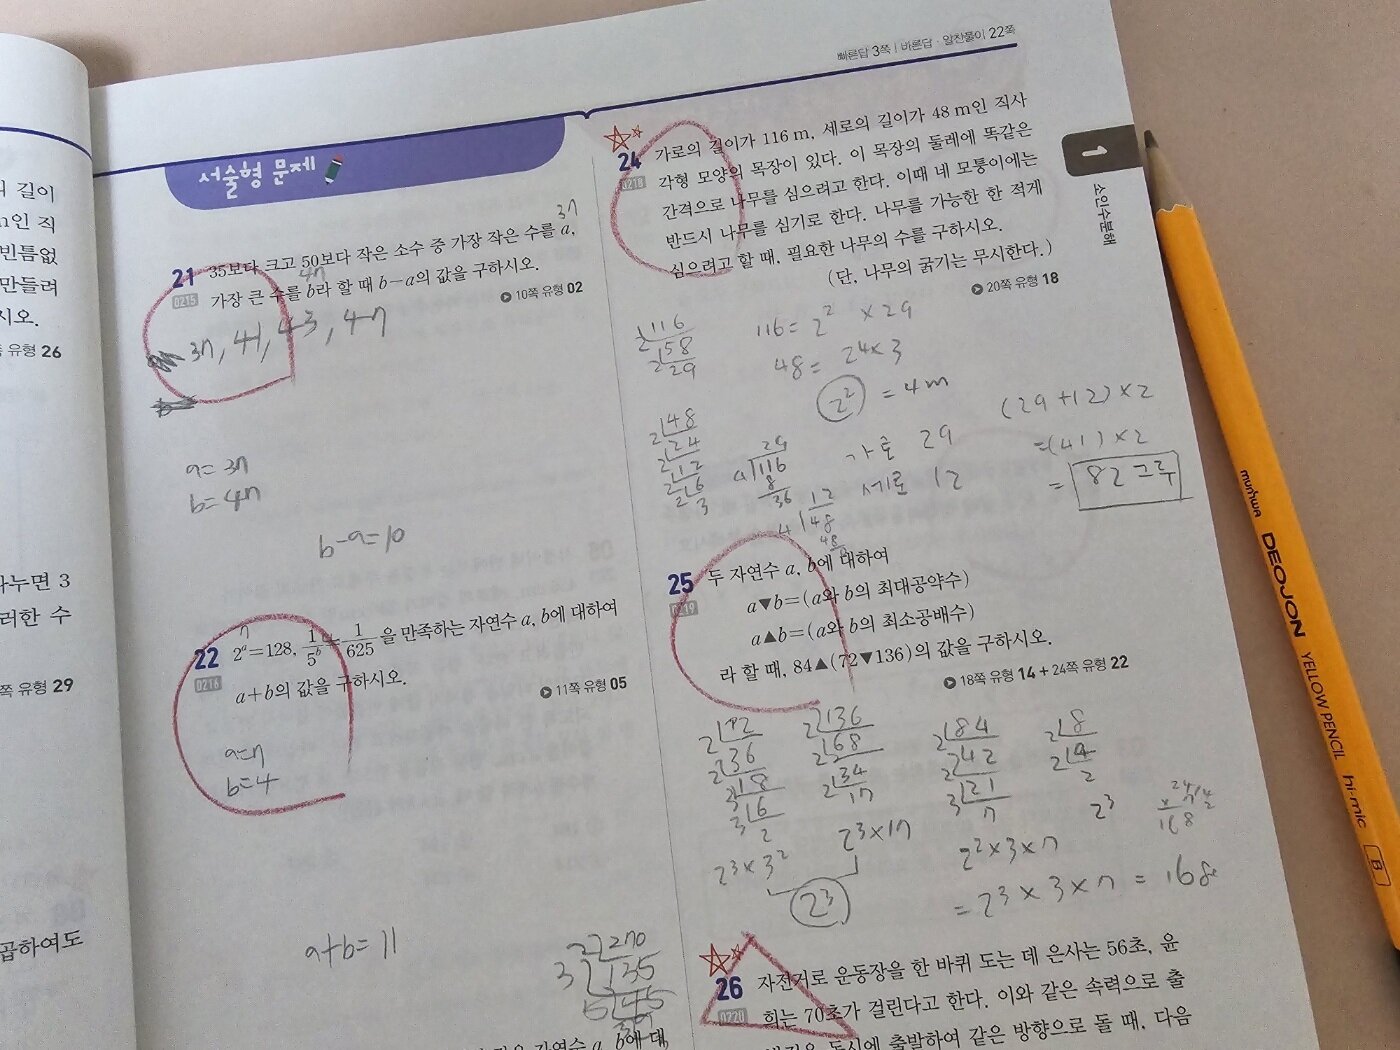 빠른답 3쪽 | 바른답 · 알찬풀이 22쪽
길이
m인 직
빈틈없
만들려
시오.
유형 26
나누면 3
러한 수
쪽 유형 29
곱하여도
서술형 문제
21
0215
35보다 크고 50보다 작은 소수 중 가장 작은 수를 a,
37
가장 큰 수를 b라 할 때 b-a의 값을 구하시오.
47
10쪽 유형 02
37, 41, 43, 47
a=37
b=47
b-a=10
22
0216
2ᵃ=128, 1/5ᵇ=1/625을 만족하는 자연수 a, b에 대하여
7
a+b의 값을 구하시오.
11쪽 유형 05
a=7
b=4
a+b=11
2 270
3 135
45
자연수 a, b에 대
24
0218
가로의 길이가 116 m, 세로의 길이가 48 m인 직사
각형 모양의 목장이 있다. 이 목장의 둘레에 똑같은
간격으로 나무를 심으려고 한다. 이때 네 모퉁이에는
반드시 나무를 심기로 한다. 나무를 가능한 한 적게
심으려고 할 때, 필요한 나무의 수를 구하시오.
(단, 나무의 굵기는 무시한다.)
20쪽 유형 18
2 116
2 58
29
116=2² ×29
48=2⁴×3
2² =4m
2 48
2 24
2 12
2 6
3
29
4 116
8
36
12
4 48
48
가로 29
세로 12
(29+12)×2
=(41)×2
=82그루
25
0219
두 자연수 a, b에 대하여
a▼b=(a와 b의 최대공약수)
a▲b=(a와 b의 최소공배수)
라 할 때, 84▲(72▼136)의 값을 구하시오.
18쪽 유형 14+24쪽 유형 22
2 72
2 36
2 18
3 6
2
2³×3²
2 136
2 68
2 34
17
2³×17
2³
2 84
2 42
3 21
7
2²×3×7
=2³×3×7=168
2 8
2 4
2
2³
24
168
26
0220
자전거로 운동장을 한 바퀴 도는 데 은사는 56초, 윤
희는 70초가 걸린다고 한다. 이와 같은 속력으로 출
동시에 출발하여 같은 방향으로 돌 때, 다음
1
소인수분해
munhwa DEOJON YELLOW PENCIL hi-mic B